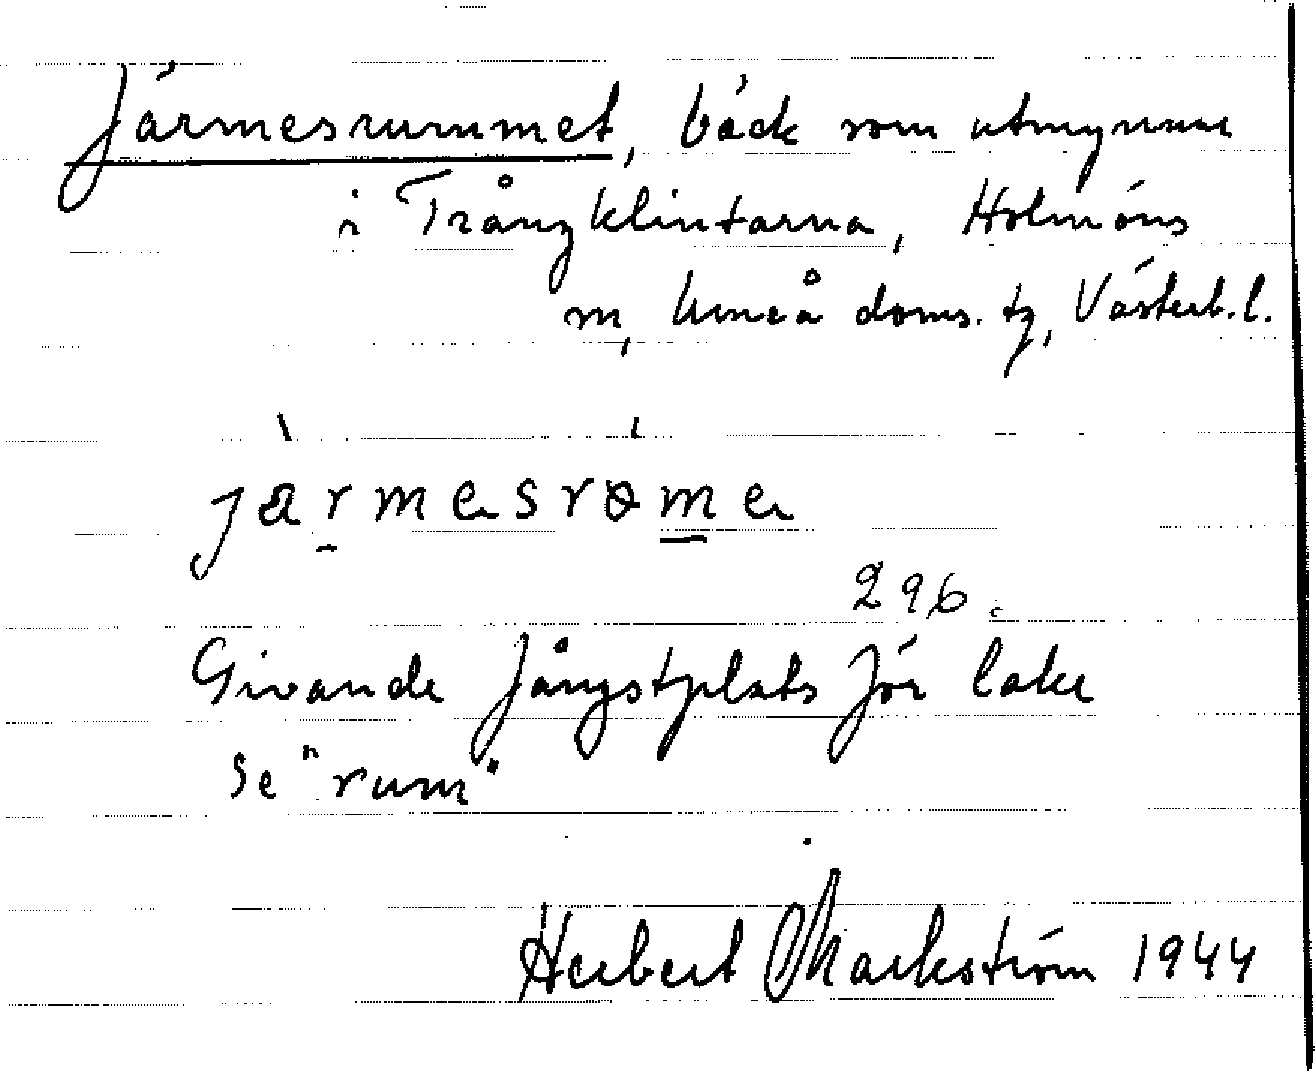 Järmesrummet, bäck som utmynnar
i Trångklintarna, Holmöns
m, Umeå doms. tg, Västerb. l.
Givande fångstplats för lake
se "rum"
296.
Herbert Markström 1944